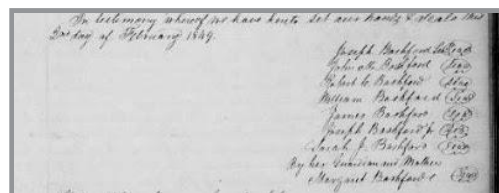 In testimony whereof we have hereto set our hands & seals this
2nd day of February 1849.
Joseph Bashford Sen Seal
John M. Bashford Seal
Robert C. Bashford Seal
William Bashford Seal
James Bashford Seal
Joseph Bashford Jr Seal
Sarah J. Bashford Seal
By her Guardian and Mother
Margaret Bashford Seal